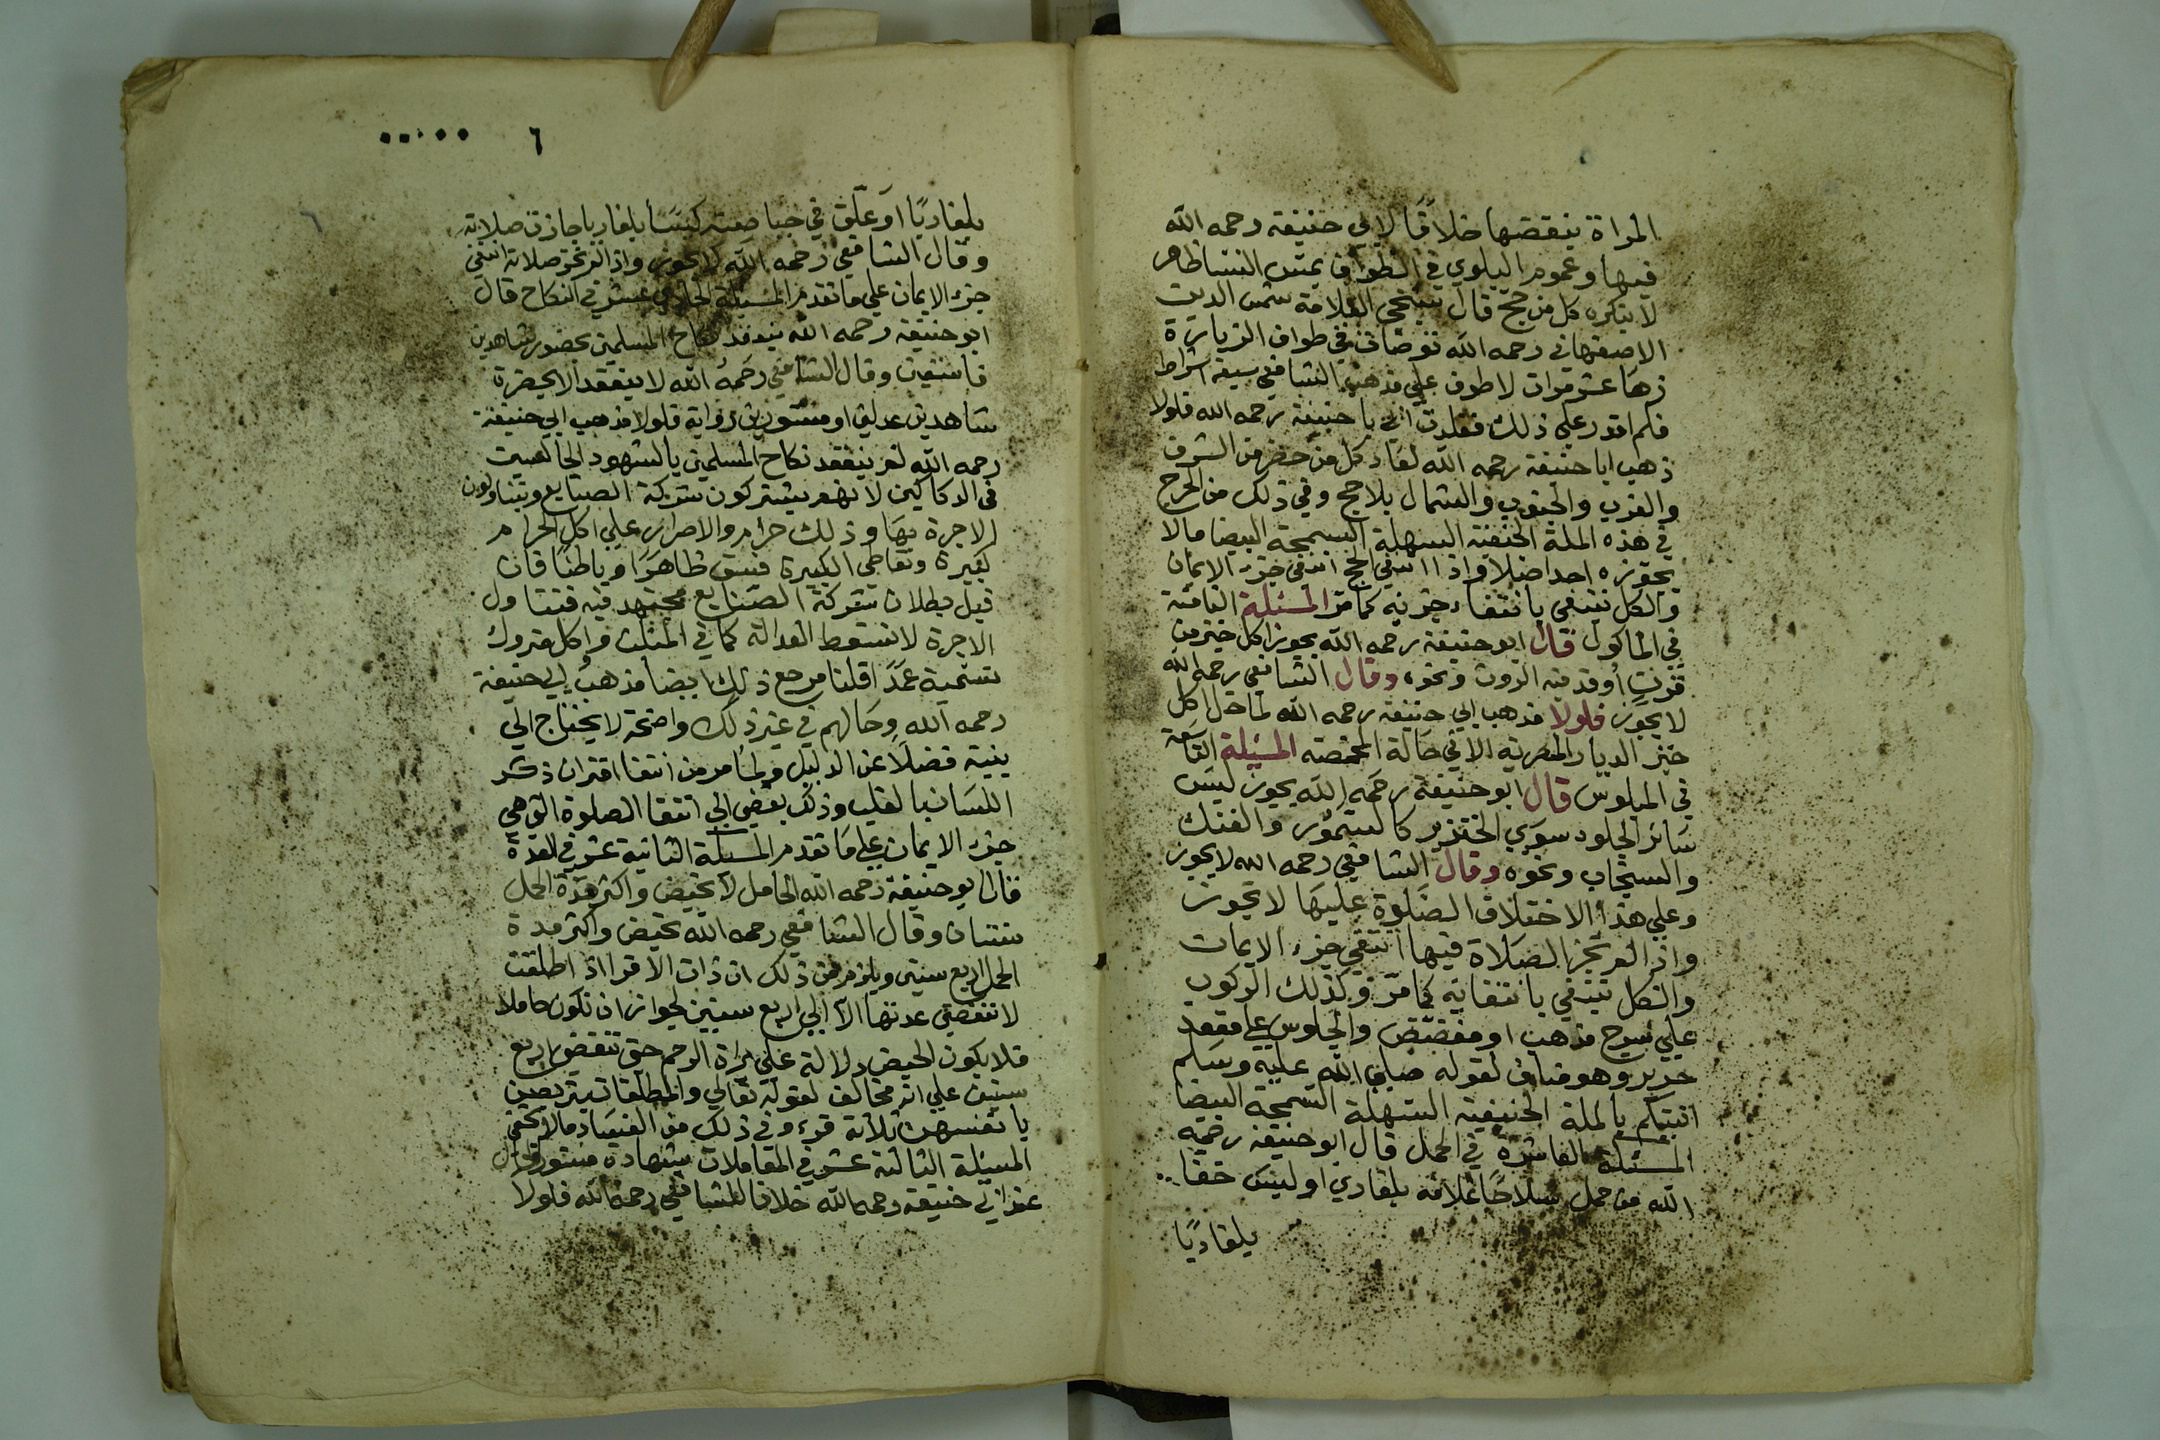 المراة ينقضها خلافا لابي حنيفة رحمه الله
فيها وعموم البلوي في الطواف بمس النسا ظاهر
لا ينكره كل من حج قال شيخي العلامة شمس الدين
الاصفهاني رحمه الله توضات في طواف الزيارة
زها عشر مرات لاطوف علي مذهب الشافعي سبعة اشواط
فلم اقدر علي ذلك فقلدت ابا حنيفة رحمه الله فلولا
ذهب ابا حنيفة رحمه الله لعاد كل من حضر من الشرق
والغرب والجنوب والشمال بلا حج وفي ذلك من الحرج
في هذه الملة الحنفية السهلة السمحة البيضا مالا
يجوزه احد اصلا واذا انتفي الحج انتفي جزء الايمان
والكل ينتفي بانتفاء جزئه كما مر المسئلة الثامنة
في الماكول قال ابو حنيفة رحمه الله يجوز اكل خبز من
فرن اوقد فيه الروث ونحوه وقال الشافعي رحمه الله
لا يجوز فلولا مذهب ابي حنيفة رحمه الله لما حل اكل
خبز الديار المصرية الا في حالة المخمصة المسئلة التاسعة
في الملبوس قال ابو حنيفة رحمه الله يجوز لبس
سائر الجلود سوي الخنزير كالسمور والفنك
والسنجاب ونحوه وقال الشافعي رحمه الله لا يجوز
وعلي هذا الاختلاف الصلوة عليها لا تجوز
واذا لم تجز الصلاة فيها انتفي جزء الايمان
والكل ينتفي بانتفايه كما مر وكذلك الركوب
علي سرج مذهب او مفضض والجلوس علي مقعد
حرير وهو مناف لقوله صلي الله عليه وسلم
اتيتكم بالملة الحنيفية السهلة السمحة البيضا
المسئلة العاشرة في الحمل قال ابو حنيفة رحمه
الله من حمل سلاحا غلافه بلغادي او لبس خفا
بلغاديا
٦
بلغاديا او علق في خياصته كيسا بلغاريا جازت صلاته
وقال الشافعي رحمه الله لا يجوز واذا لم تجز صلاته انتفي
جزء الايمان علي ما تقدم المسئلة الحادي عشر في النكاح قال
ابو حنيفة رحمه الله ينعقد نكاح المسلمين بحضور شاهدين
فاسقين وقال الشافعي رحمه الله لا ينعقد الا بحضرة
شاهدين عدلين او مستورين في رواية فلولا مذهب ابي حنيفة
رحمه الله لم ينعقد نكاح المسلمين بالشهود الجالسين
في الدكاكين لانهم يشتركون شركة الصنايع ويتناولون
الاجرة بها وذلك حرام والاصرار علي اكل الحرام
كبيرة وتعاطي الكبيرة فسق ظاهرا وباطنا فان
قيل بطلان شركة الصنايع مجتهد فيه فتناول
الاجرة لا تسقط العدالة كما في المثلث واكل متروك
تسمية عمدا قلنا مرجع ذلك ايضا مذهب ابي حنيفة
رحمه الله وحالهم في غير ذلك واضحة لا يحتاج الي
بينة فضلا عن الدليل ولما مر من انتفا اقتران ذكر
اللسان بالقلب وذلك يفضي الي انتفا الصلوة التي هي
جزء الايمان علي ما تقدم المسئلة الثانية عشر في العدة
قال ابو حنيفة رحمه الله الحامل لا تحيض واكثر مدة الحمل
سنتان وقال الشافعي رحمه الله تحيض واكثر مدة
الحمل اربع سنين ويلزم من ذلك ان ذات الاقرا اذا طلقت
لا تنقضي عدتها الا الي اربع سنين لجواز ان تكون حاملا
فلا يكون الحيض دلالة علي براة الرحم حتي تنقضي اربع
سنين علي انه مخالف لقوله تعالي والمطلقات يتربصن
بانفسهن ثلاثة قروء وفي ذلك من الفساد مالا يخفي
المسئلة الثالثة عشر في المعاملات شهادة مستور الحال
عند ابي حنيفة رحمه الله خلافا للشافعي رحمه الله فلولا